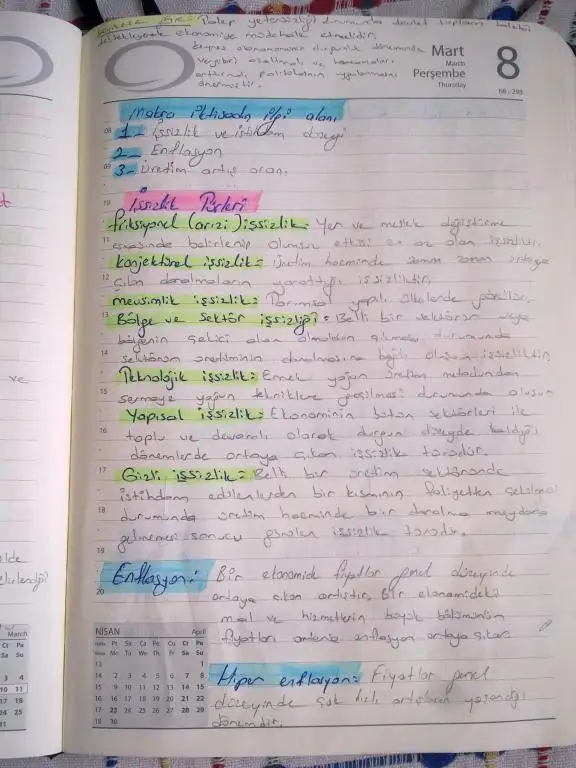 Talep yetersizliği durumunda devlet toplam talebi
destekleyerek ekonomiye müdahale etmelidir.
ekonominin durgunluk döneminde
vergileri azaltmalı ve harcamaları
arttırmalı politikalarını uygulamasını
önermiştir.
Mart
March
Perşembe
Thursday
8
Makro iktisadın ilgi alanı
08 1- İşsizlik ve istihdam düzeyi
2- Enflasyon
09 3- Üretim artış oranı
10 İşsizlik Türleri
friksiyonel (arızi) işsizlik: Yer ve meslek değiştirme
11 esnasında belirlenip olumsuz etkisi en az olan işsizliktir.
Konjektürel işsizlik: Üretim hacminde zaman zaman ortaya
12 çıkan daralmaların yarattığı işsizliktir.
mevsimlik işsizlik: Tarımsal yapılı ülkelerde görülür.
13 Bölge ve Sektör işsizliği: Belli bir sektörün veya
bölgenin çekici olan olmaktan çıkması durumunda
14 sektörün üretiminin daralmasına bağlı oluşan işsizliktir
Teknolojik işsizlik: Emek yoğun üretim metodundan
15 sermaye yoğun tekniklere geçilmesi durumunda oluşur
Yapısal işsizlik: Ekonominin bütün sektörleri ile
16 toplu ve devamlı olarak durgun düzeyde kaldığı
dönemlerde ortaya çıkan işsizlik türüdür.
17 Gizli işsizlik: Belli bir üretim sektöründe
istihdam edilenlerden bir kısmının faliyetten çekilmesi
18 durumunda üretim hacminde bir daralma meydana
gelmemesi sonucu görülen işsizlik türüdür.
19
Enflasyon: Bir ekonomide fiyatlar genel düzeyinde
20 ortaya çıkan artıştır. Bir ekonomideki
mal ve hizmetlerin büyük bölümünün
fiyatları artarsa enflasyon ortaya çıkar.
Hiper enflasyon: Fiyatlar genel
düzeyinde çok hızlı artışların yaşandığı
dönemdir.
NİSAN April
Pt Sa Ça Pe Cu Ct Pa
Mo Tu We Th Fr Sa Su
13 1
14 2 3 4 5 6 7 8
15 9 10 11 12 13 14 15
16 16 17 18 19 20 21 22
17 23 24 25 26 27 28 29
18 30
ve
March
Ct Pa
Sa Su
3 4
10 11
17 18
24 25
31